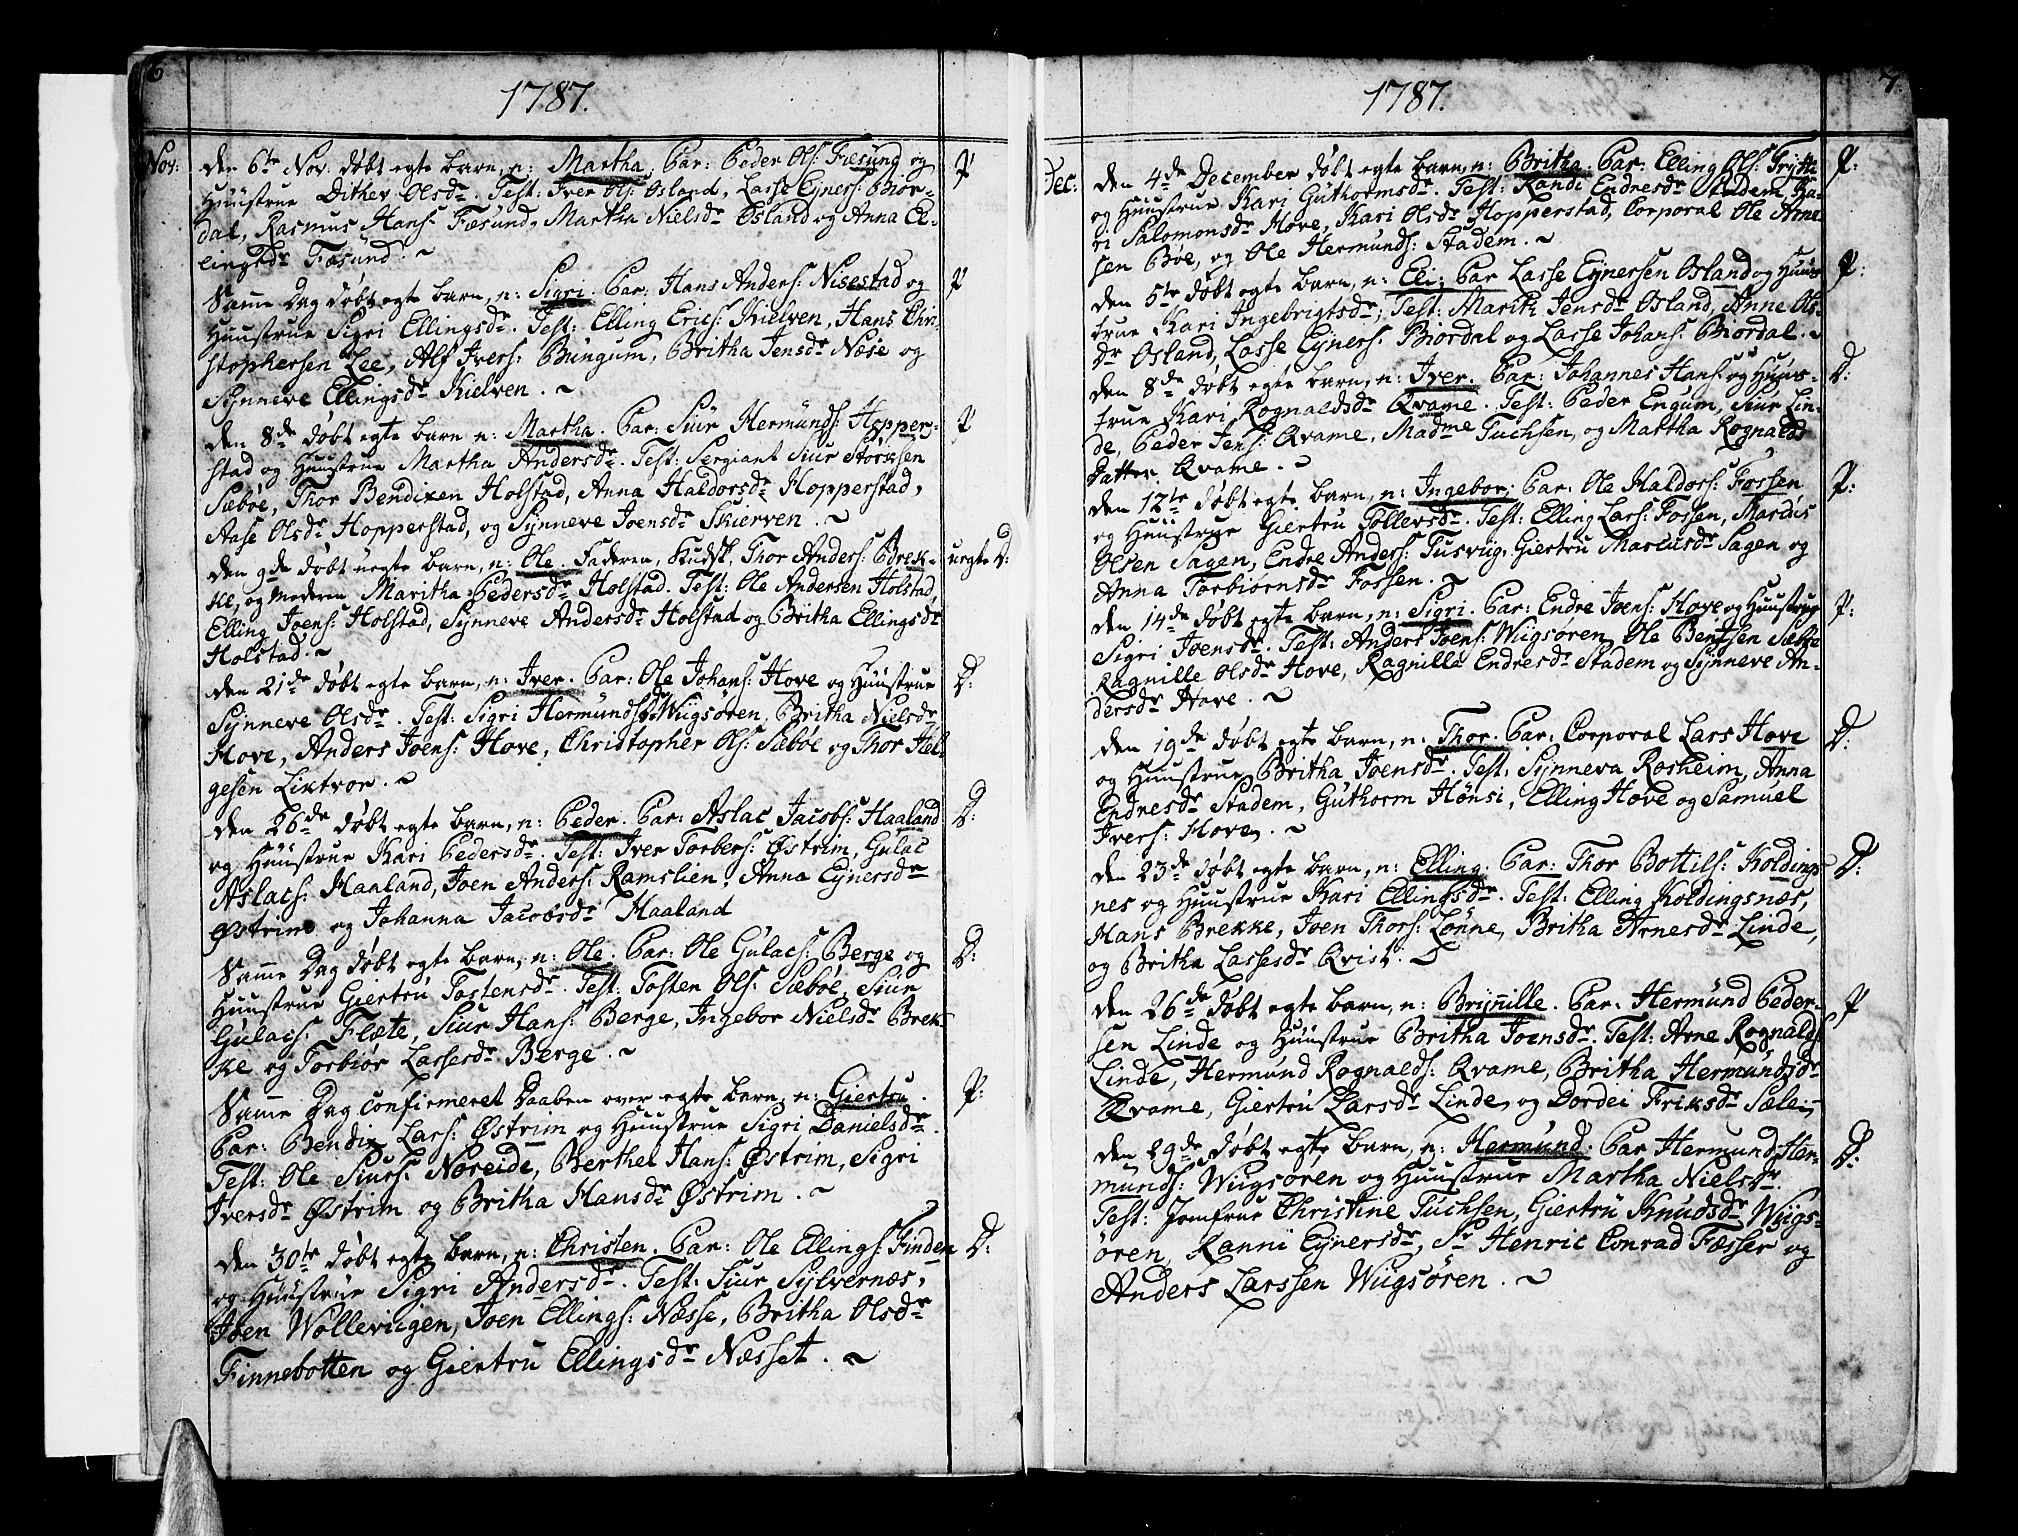 6
1787.
Nov: den 6te Nov. døbt egte barn, n: Martha, Par: Peder Ols: Fæsund og P
Huustrue Dithev Olsdr. Test: Iver Ols: Øsland, Lasse Ejners: Biør-
dal, Rasmus Hans: Fæsund, Martha Nielsdr Øsland og Anna El-
lingsdr Fæsund. ~
Samme Dag døbt egte barn, n: Sigri. Par: Hans Anders: Nisestad og P
Huustrue Sigri Ellingsdr. Test: Elling Erics: Kielven, Hans Chri-
stophersen Lee, Alf Ivers: Bungum, Britha Jensdr Næse og
Synneve Ellingsdr Kielven. ~
den 8de døbt egte barn n: Martha. Par: Siur Hermunds: Hoppers- P
stad og Huustrue Martha Andersdr. Test: Sergiant Siur Størksen
Sæbøe, Thor Bendixen Holstad, Anna Haldorsdr Hopperstad,
Aase Olsdr Hopperstad, og Synneve Joensdr Skierven. ~
den 9de døbt uegte barn, n: Ole. Faderen, Thor Anders: Brek- uegte D:
ke, og Moderen Maritha Pedersdr Holstad. Test: Ole Andersen Holstad,
Elling Joens: Holstad, Synneve Andersdr Holstad og Britha Ellingsdr
Holstad. ~
den 21de døbt egte barn, n: Iver. Par: Ole Johans: Hove og Huustrue D:
Synneve Olsdr. Test: Sigri Hermundsdr Wiigsøren, Britha Nielsdr
Hove, Anders Joens: Hove, Christopher Ols: Sæbøe og Thor Hel-
gesen Lixtvor. ~
den 26de døbt egte barn, n: Peder. Par: Aslac Jacobs: Haaland D:
og Huustrue Kari Pedersdr. Test: Iver Torbers: Østrim, Gulac
Aslacs: Haaland, Joen Anders: Ramslien, Anna Ejnersdr
Østrim og Johanna Jacobsdr Haaland
Samme Dag døbt egte barn, n: Ole. Par: Ole Gulacs: Berge og D:
Huustrue Giertru Tostensdr. Test: Tosten Ols: Sæbøe, Siur
Gulacs: Flæte, Siur Hans: Berge, Ingebor Nielsdr Brek-
ke og Torbiør Lassesdr Berge. ~
Samme Dag confirmeret Daaben over egte barn, n: Giertru. P:
Par: Bendix Lars: Østrim og Huustrue Sigri Danielsdr.
Test: Ole Siurs: Nøreide, Berthel Hans: Østrim, Sigri
Iversdr Østrim og Britha Hansdr Østrim. ~
den 30te døbt egte barn, n: Christen. Par: Ole Ellings: Finden D:
og Huustrue Sigri Andersdr. Test: Siur Sylvernæs,
Joen Wolleviigen, Joen Ellings: Næsse, Britha Olsdr
Finnebotten og Giertru Ellingsdr Næsset. ~
7.
1787.
Dec: den 4de December døbt egte barn, n: Britha. Par: Elling Ols: Trytti P:
og Huustrue Kari Guthormsdr. Test: Randi Endresdr Stadem, Ka-
ri Salomonsdr Hove, Kari Olsdr Hopperstad, Corporal Ole Arne-
sen Bøe, og Ole Hermunds: Stadem. ~
den 5te døbt egte barn, n: Eli. Par Lasse Ejnersen Øsland og Huus- P:
true Kari Ingebrigtsdr, Test: Marith Jensdr Øsland, Anne Ols-
dr Øsland, Lasse Ejners: Biordal og Lasse Johans: Biordal. ~
den 8de døbt egte barn, n: Iver. Par: Johannes Hans: og Huus- D:
true Kari Rognaldsdr Qvame. Test: Peder Engum, Siur Lin-
de, Peder Jens: Qvame, Madme Tuchsen, og Martha Rognalds
Datter Qvame. ~
den 12te døbt egte barn, n: Ingebor. Par: Ole Haldors: Fossen P:
og Huustrue Giertru Tollevsdr. Test: Elling Lars: Fossen, Marcus
Olsen Sagen, Endre Anders: Tusviig, Giertru Marcusdr Sagen og
Anna Torbiørnsdr Fossen. ~
den 14de døbt egte barn, n: Sigri. Par: Endre Joens: Hove og Huustrue P:
Sigri Joensdr. Test: Anders Joens: Wiigsøren, Ole Bentsen Sæbøe
Ragnille Olsdr Hove, Ragnilla Endresdr Stadem og Synneve An-
dersdr Hove. ~
den 19de døbt egte barn, n: Thor. Par: Corporal Lars Hove D:
og Huustrue Britha Joensdr. Test: Synneva Rosheim, Anna
Endresdr Stadem, Guthorm Hønsi, Elling Hove og Samuel
Ivers: Hove. ~
den 23de døbt egte barn, n: Elling. Par: Thor Bottils: Koldings- D:
nes og Huustrue Kari Ellingsdr. Test: Elling Koldingsnæs,
Hans Brekke, Joen Thors: Lønne, Britha Arnesdr Linde,
og Britha Lassesdr Qvist. ~
den 26de døbt egte barn, n: Brynnille. Par: Hermund Peder- P
sen Linde og Huustrue Britha Joensdr. Test: Arne Rognalds:
Linde, Hermund Rognalds: Qvame, Britha Hermundsdr
Qvame, Giertru Larsdr Linde, og Dordei Friksdr Sælen
den 29de døbt egte barn, n: Hermund. Par Hermund Her- D:
munds: Wiigsøren og Huustrue Martha Nielsdr.
Test: Jomfrue Christine Tuchsen, Giertru Knudsdr Wiigs-
øren, Ranni Ejnersdr, Sr Henric Conrad Fæsser og
Anders Larssen Wiigsøren. ~